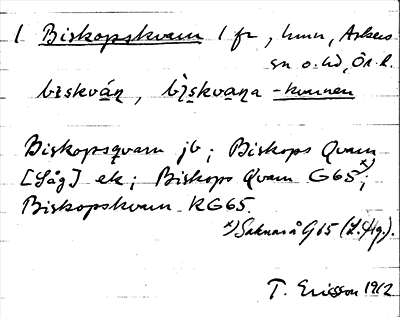 1 Biskopskvarn 1 fr, hmn, Askers
sn o. hd, Ör. l.
bɪskvá̱ṇ, bɪ̀skvaṇa - kvarnen
Biskopsqvarn jb; Biskops Qvarn
[Såg] ek; Biskops Qvarn G65 x);
Biskopskvarn RG65.
x) Saknas å G65 (L. Hg.).
T. Ericsson 1912